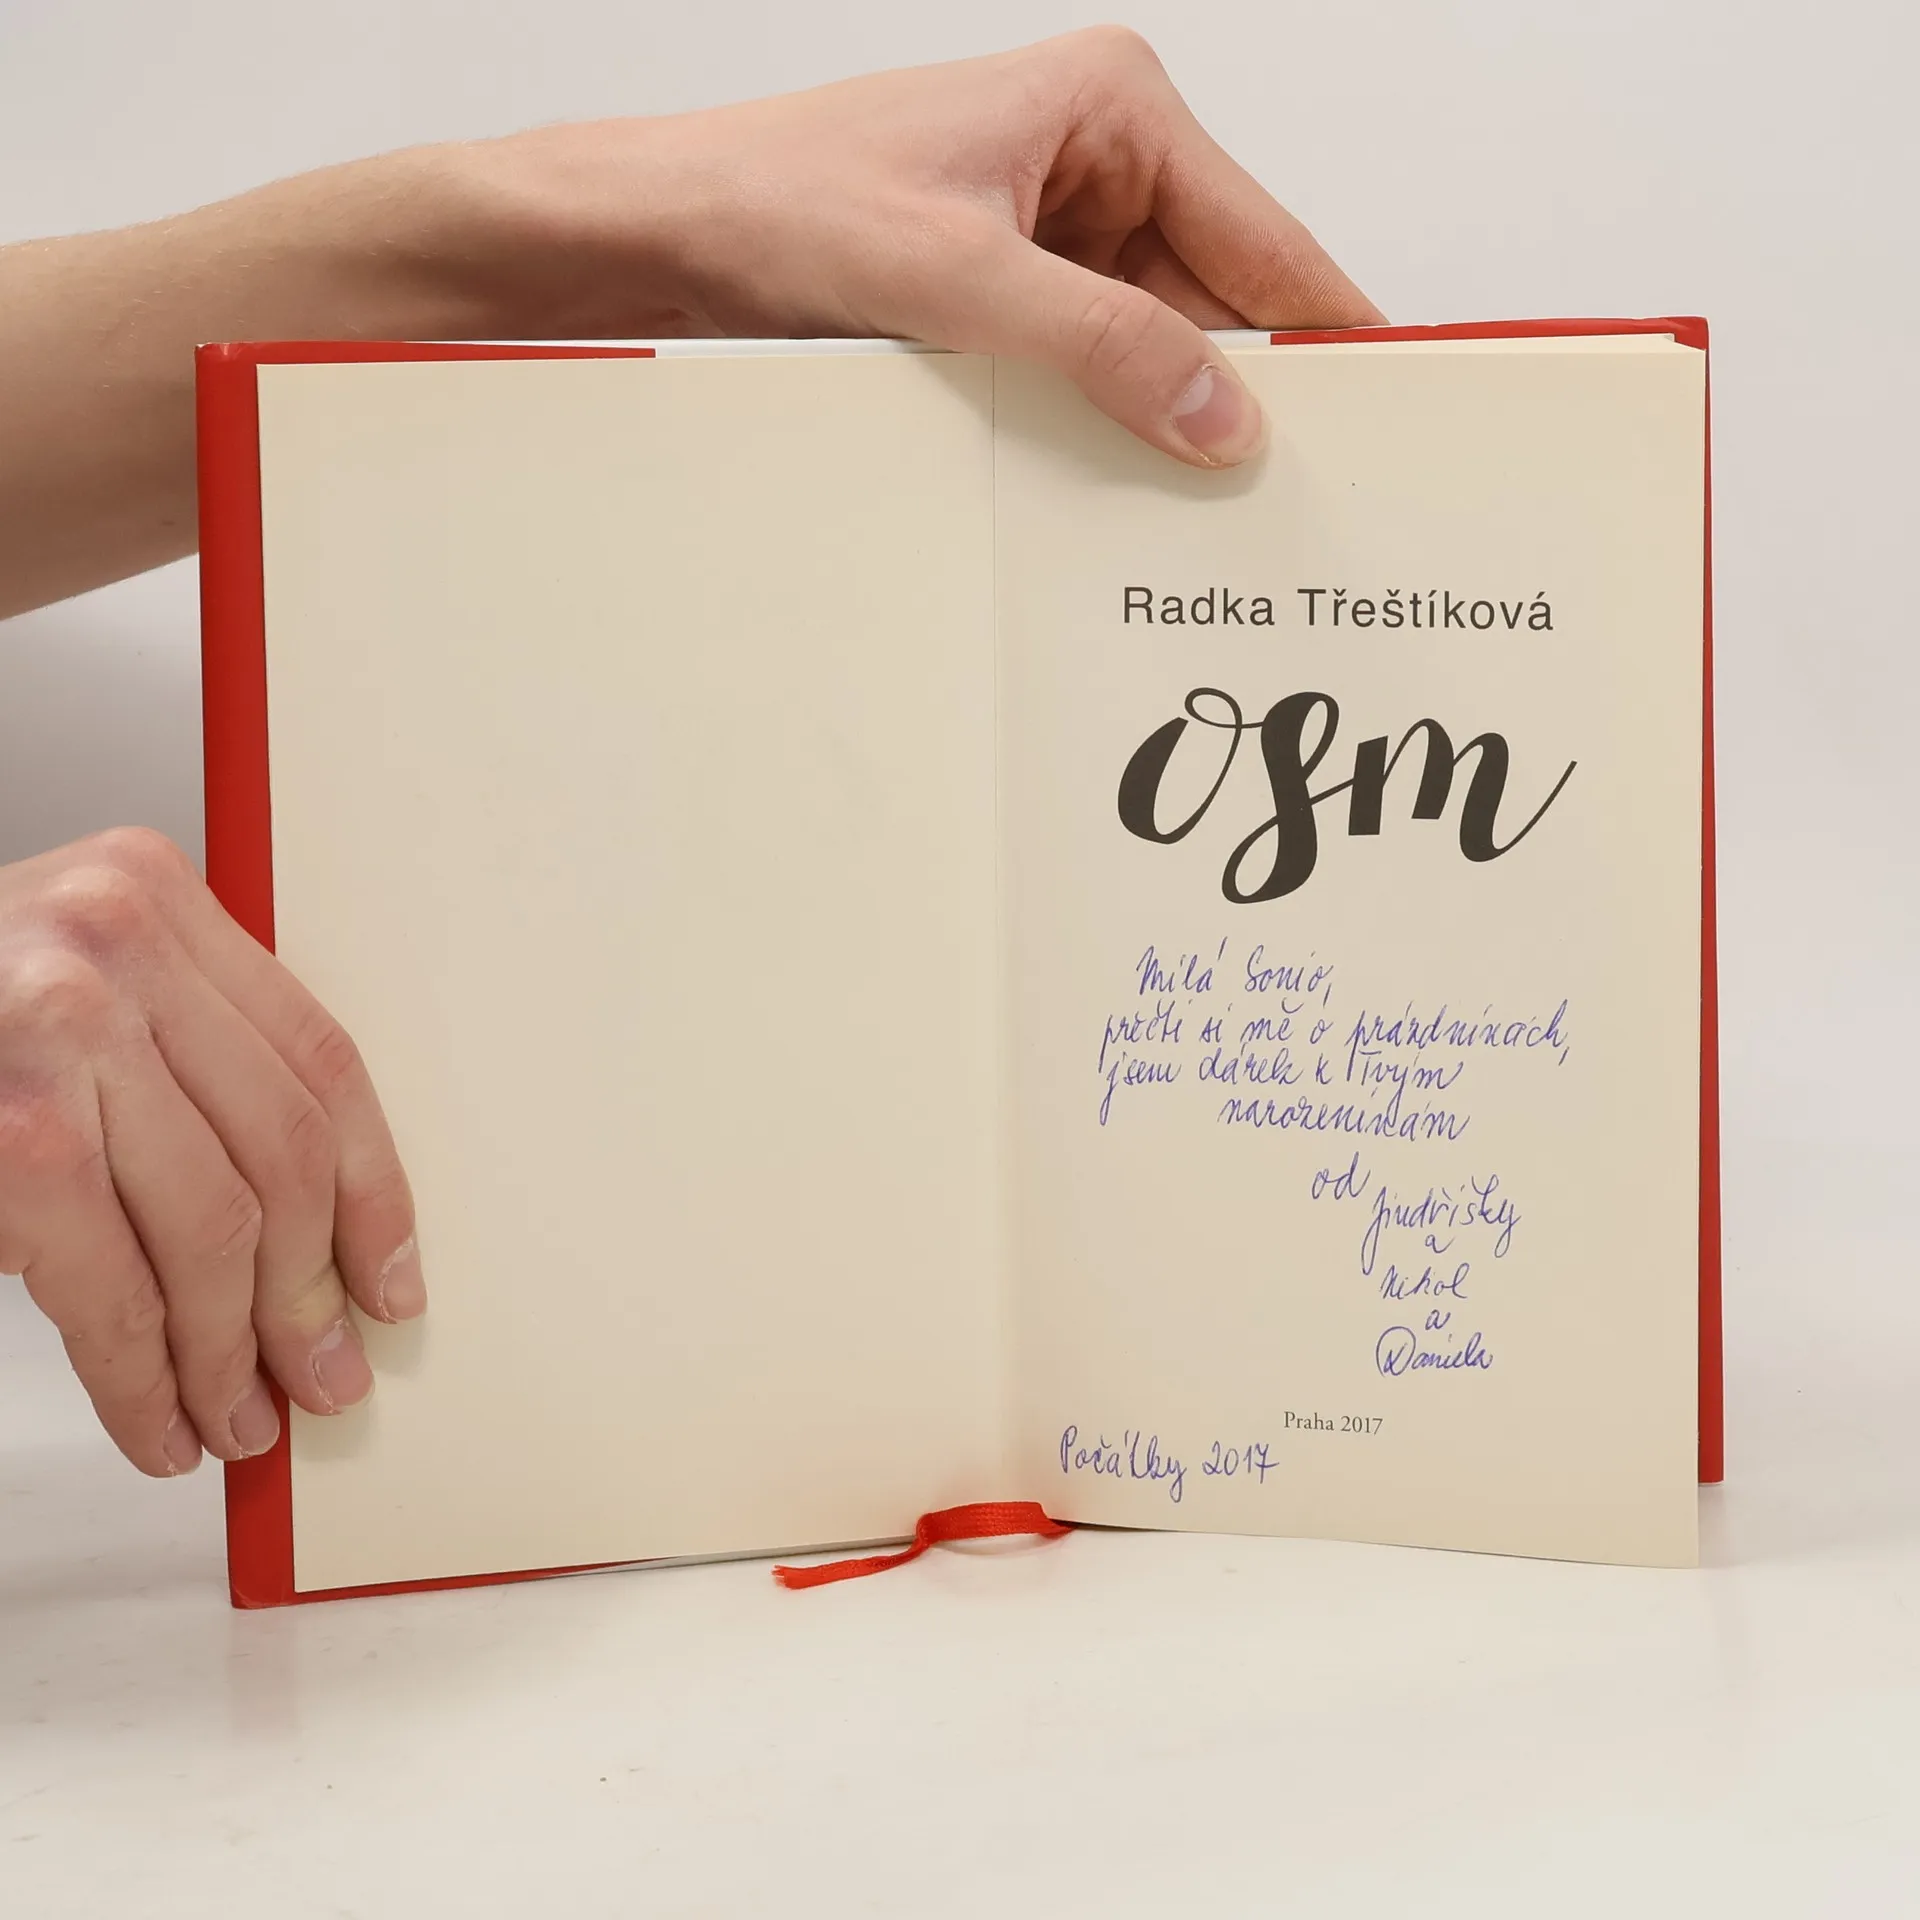 Radka Třeštíková
osm
Milá Sonio,
přečti si mě o prázdninách,
jsem dárek k Tvým
narozeninám
od
Jindřišky
a
Nikol
a
Daniela
Praha 2017
Počátky 2017